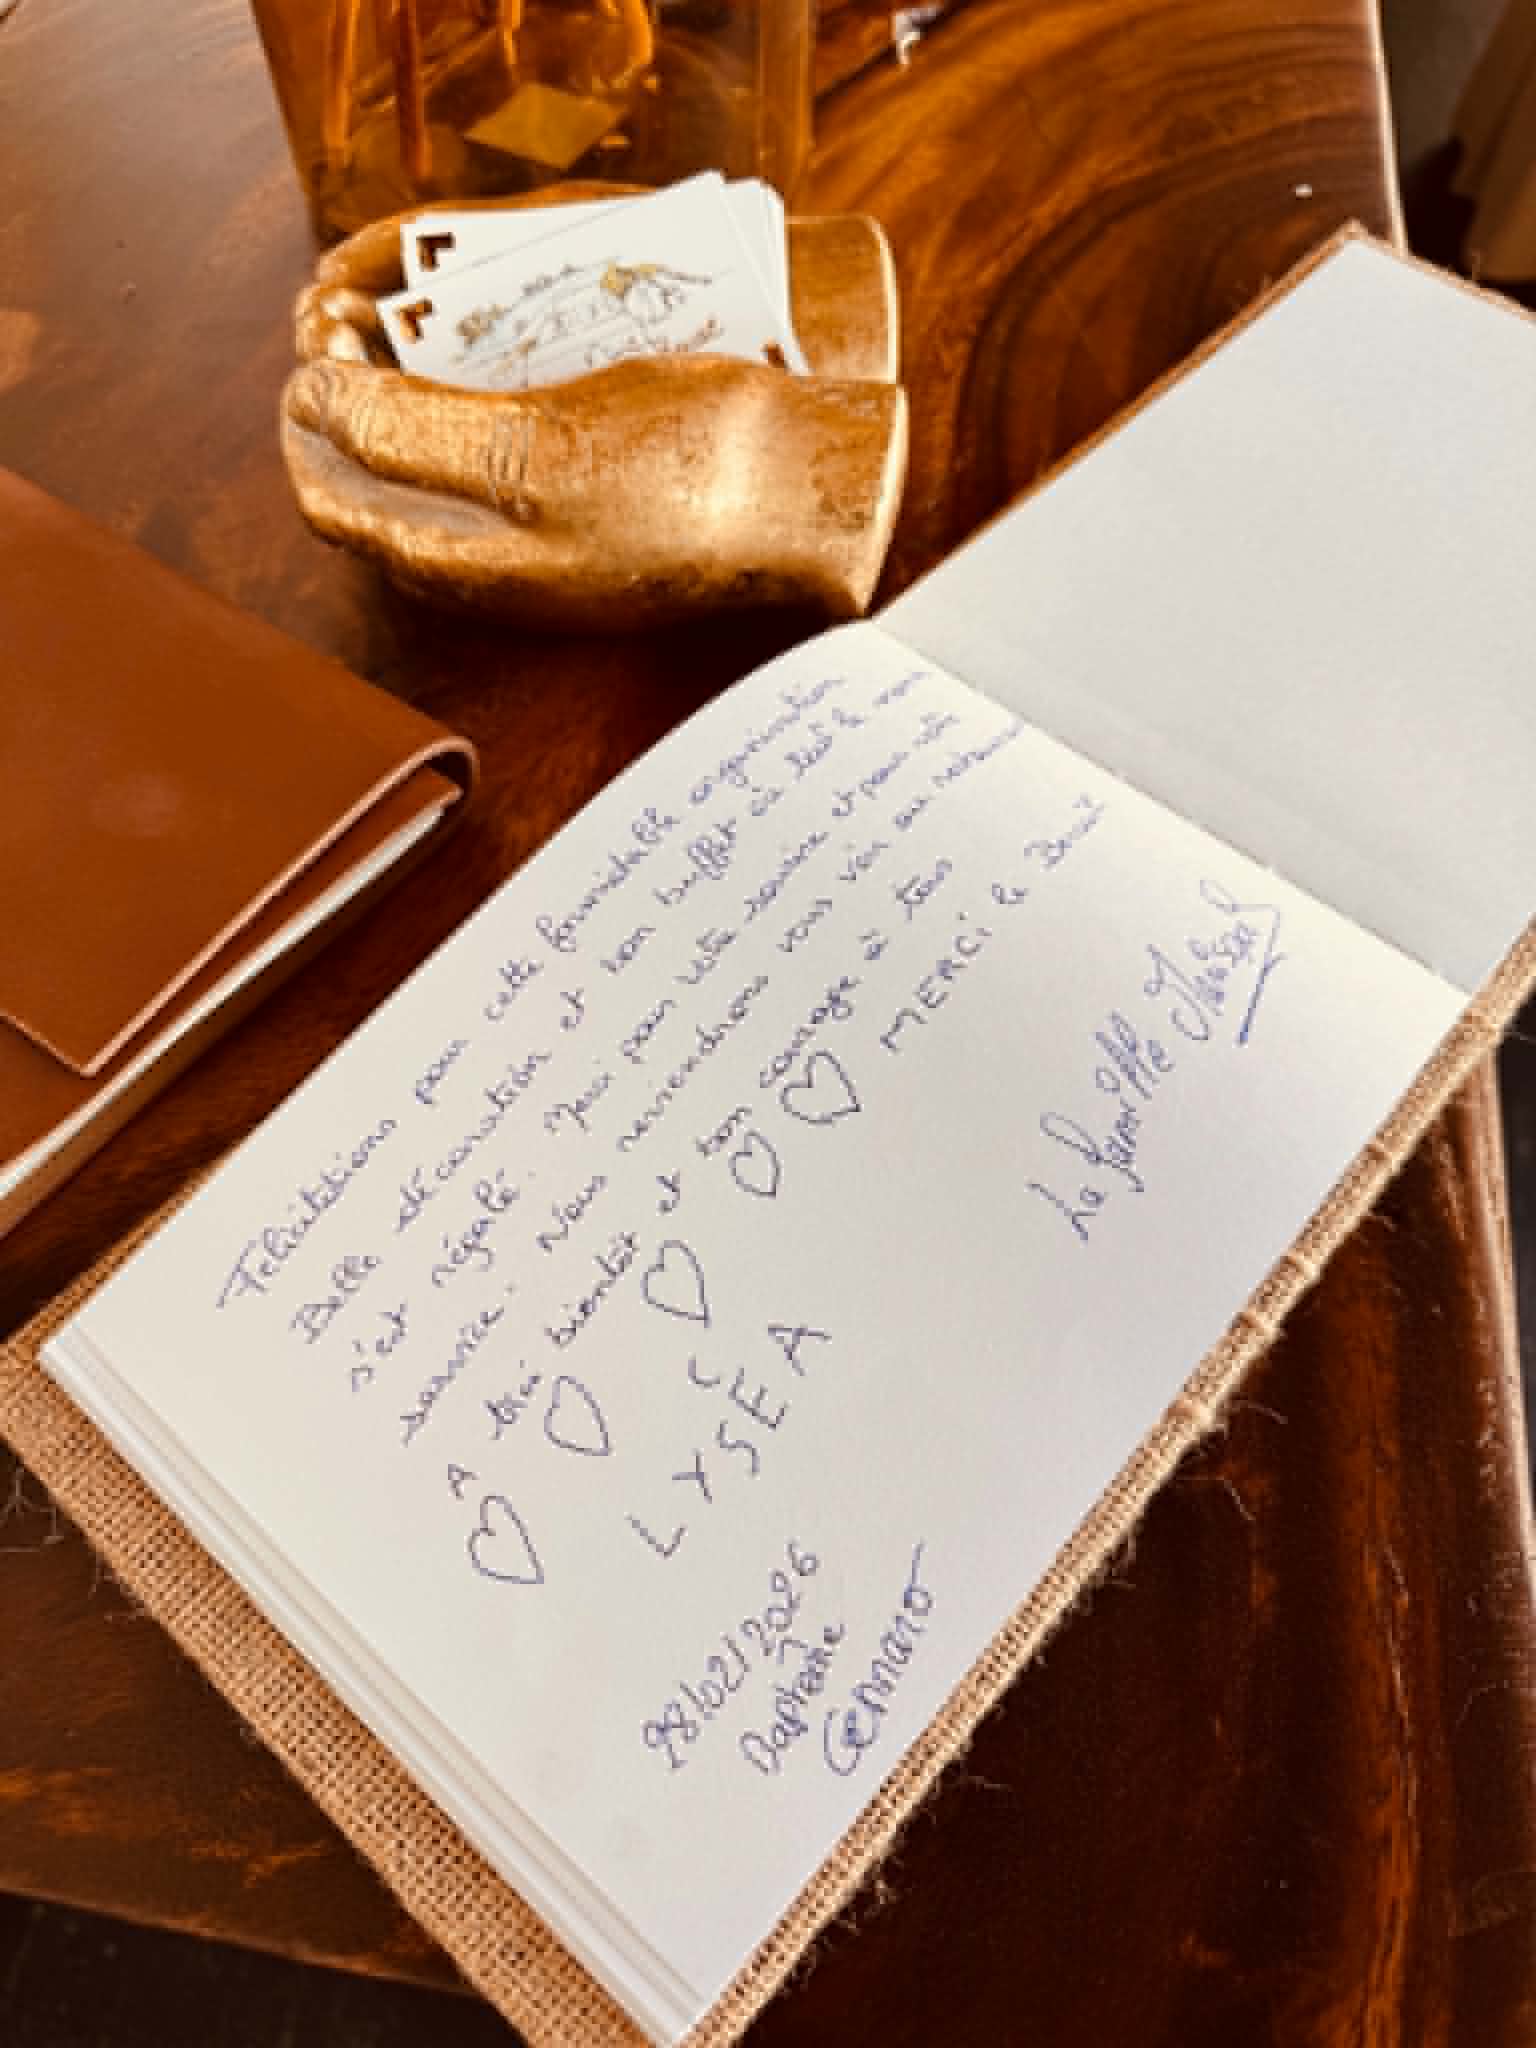 Félicitations pour cette formidable organisation
Belle décoration et bon buffet où tout le monde
s'est régalé. Merci pour votre sourire et pour votre
service. Nous reviendrons vous voir au restaurant
A très bientôt et bon courage à tous
MERCI le
LYSÉA
La famille
28/02/2026
Daphnée
Gennaro